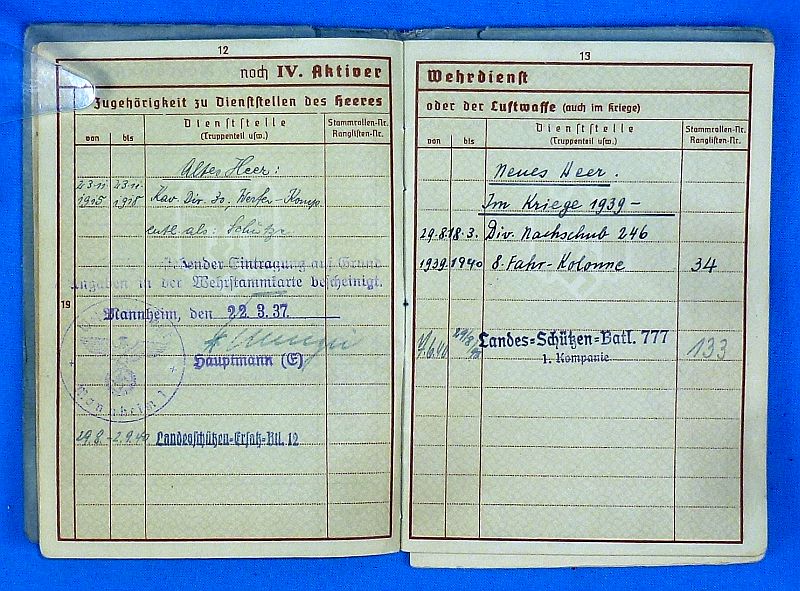 12
noch IV. Aktiver
Zugehörigkeit zu Dienststellen des Heeres
von bis
Dienststelle
(Truppenteil usw.)
Stammrollen-Nr.
Ranglisten-Nr.
Altes Heer:
23.11. 23.11.
1915 1918 Kav. Div. 30. Werfer-Komp.
entl. als: Schütze
stehender Eintragung auf Grund
Angaben in der Wehrstammkarte bescheinigt.
19
Mannheim, den 22.3.37.
Hauptmann (E)
Mannheim 1
29.8.-2.9.40 Landesschützen-Ersatz-Btl. 12
13
Wehrdienst
oder der Luftwaffe (auch im Kriege)
von bis
Dienststelle
(Truppenteil usw.)
Stammrollen-Nr.
Ranglisten-Nr.
Neues Heer.
Im Kriege 1939-
29.8. 18.3. Div. Nachschub 246
1939 1940 8. Fahr-Kolonne 34
Landes=Schützen=Batl. 777
1. Kompanie
133